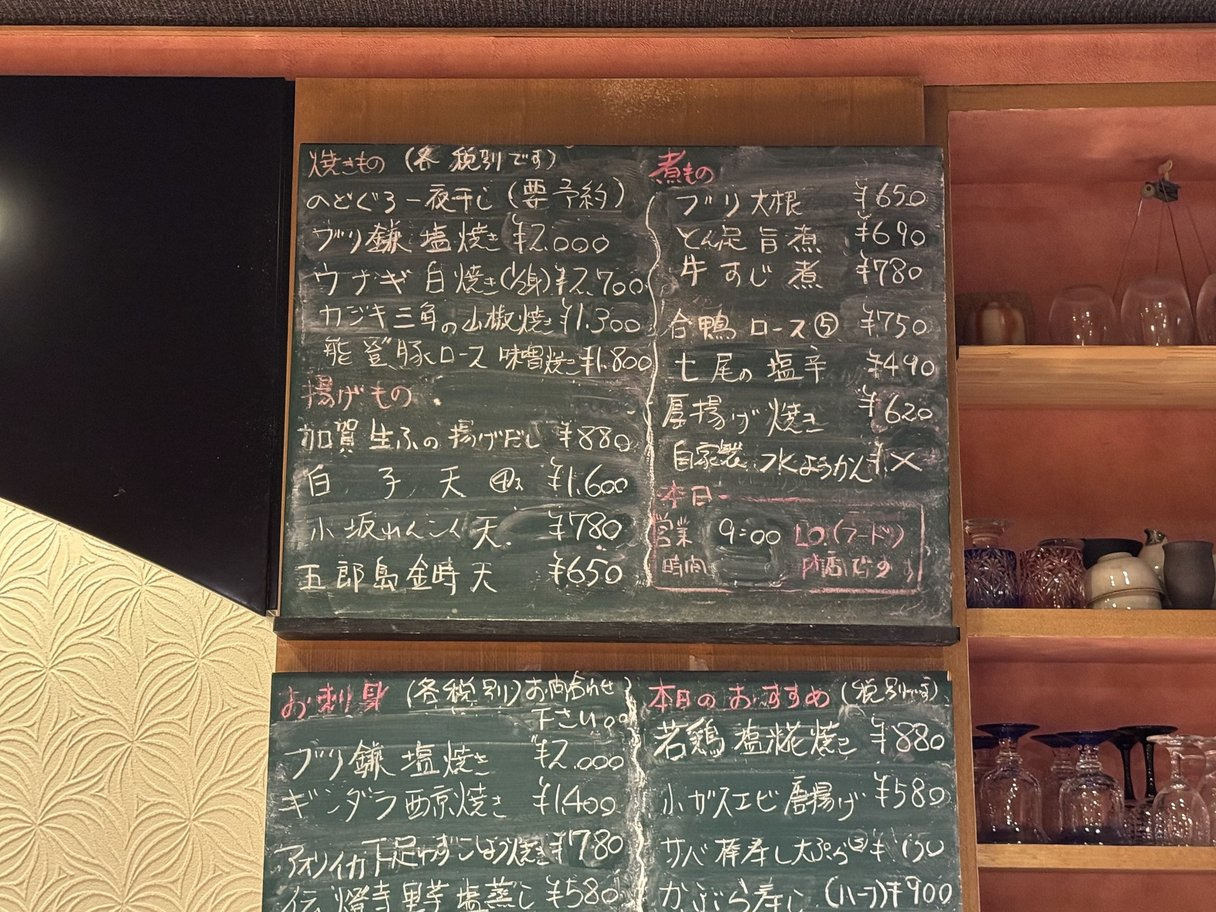 焼きもの (各 税別です)
のどぐろ一夜干し (要予約)
ブリ鎌 塩焼き ¥2.000
ウナギ 白焼き(½身)¥2.700
カジキ三角の山椒焼き ¥1.300
能登豚ロース 味噌焼き ¥1.800
揚げもの
加賀生ふの揚げだし ¥880
白 子 天 ¥1.600
小坂れんこん天 ¥780
五郎島金時天 ¥650
煮もの
ブリ大根 ¥650
とん足旨煮 ¥690
牛すじ煮 ¥780
合鴨ロース⑤ ¥750
七尾の塩辛 ¥490
厚揚げ焼き ¥620
自家製 水ようかん ¥×
本日
営業時間 9:00 L.O.(フードリ)
お刺身 (各税別) お問合わせ下さい。
ブリ鎌塩焼き ¥2.000
ギンダラ西京焼き ¥1400
アオリイカ下足ゆずこしょう焼き ¥780
伝燈寺里芋塩蒸し ¥580
本日のおすすめ (税別です)
若鶏塩糀焼き ¥880
小ガスエビ唐揚げ ¥580
サバ棒寿し
かぶら寿し (ハーフ)¥900